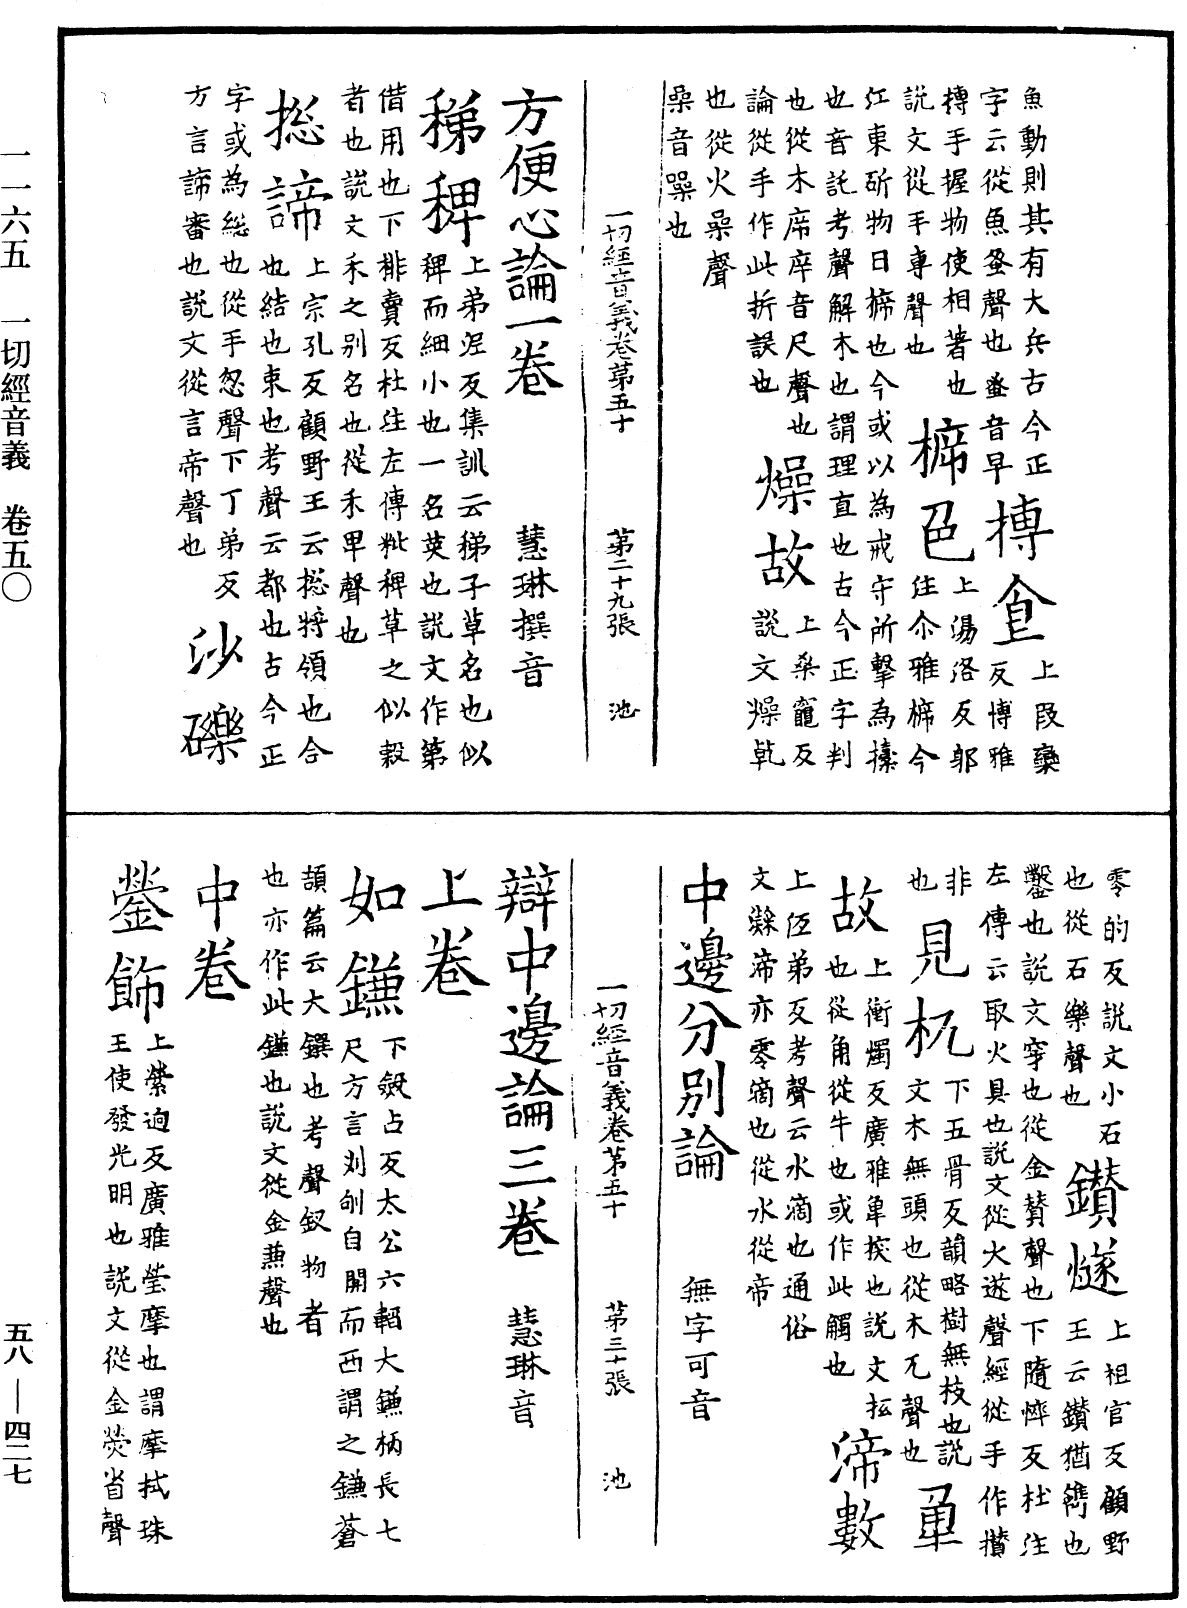 魚動則其有大兵古今正
字云從魚蚤聲也蚤音早
搏食
上段欒
反博雅
搏手握物使相著也
說文從手專聲也
㯐邑
上湯洛反郭
注尒雅㯐今
江東斫物曰㯐也今或以為戒守所擊為㯐
也音託考聲解木也謂理直也古今正字判
也從木㡿㡿音尺聲也
論從手作此折誤也
燥故
上桒竈反
說文燥乹
也從火喿聲
喿音噪也
一切經音義卷第五十 第二十九張 池
方便心論一卷 慧琳撰音
稊稗
上弟泥反集訓云稊子草名也似
稗而細小也一名英也說文作第
借用也下排賣反杜注左傳粃稗草之似穀
者也說文禾之別名也從禾卑聲也
捴諦
上宗孔反顧野王云捴將領也合
也結也束也考聲云都也古今正
字或為総也從手忽聲下丁弟反
方言諦審也說文從言帝聲也
沙礫
零的反說文小石
也從石樂聲也
鑚燧
上祖官反顧野
王云鑚猶鐫也
鑿也說文穿也從金贊聲也下隨悴反杜注
左傳云取火具也說文從火遂聲經從手作攢
非
也
見杌
下五骨反韻略樹無枝也說
文木無頭也從木兀聲也
𧢻故
上衝燭反廣雅𧢻揬也說文抎
也從角從牛也或作此觸也
渧數
上伍弟反考聲云水滴也通俗
文霡渧亦零滴也從水從帝
中邊分別論 無字可音
一切經音義卷第五十 第三十張 池
辯中邊論三卷 慧琳音
上卷
如鎌
下斂占反太公六韜大鎌柄長七
尺方言刈刎自關而西謂之鎌蒼
頡篇云大鐸也考聲釵物者
也亦作此鐮也說文從金兼聲也
中卷
鎣飾
上縈迥反廣雅瑩摩也謂摩拭珠
王使發光明也說文從金熒省聲
一一六五 一切經音義 卷五〇
五八—四二七